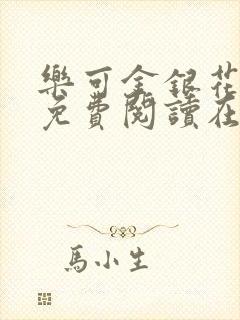 樂可金銀花
免費閱讀在
馬小生